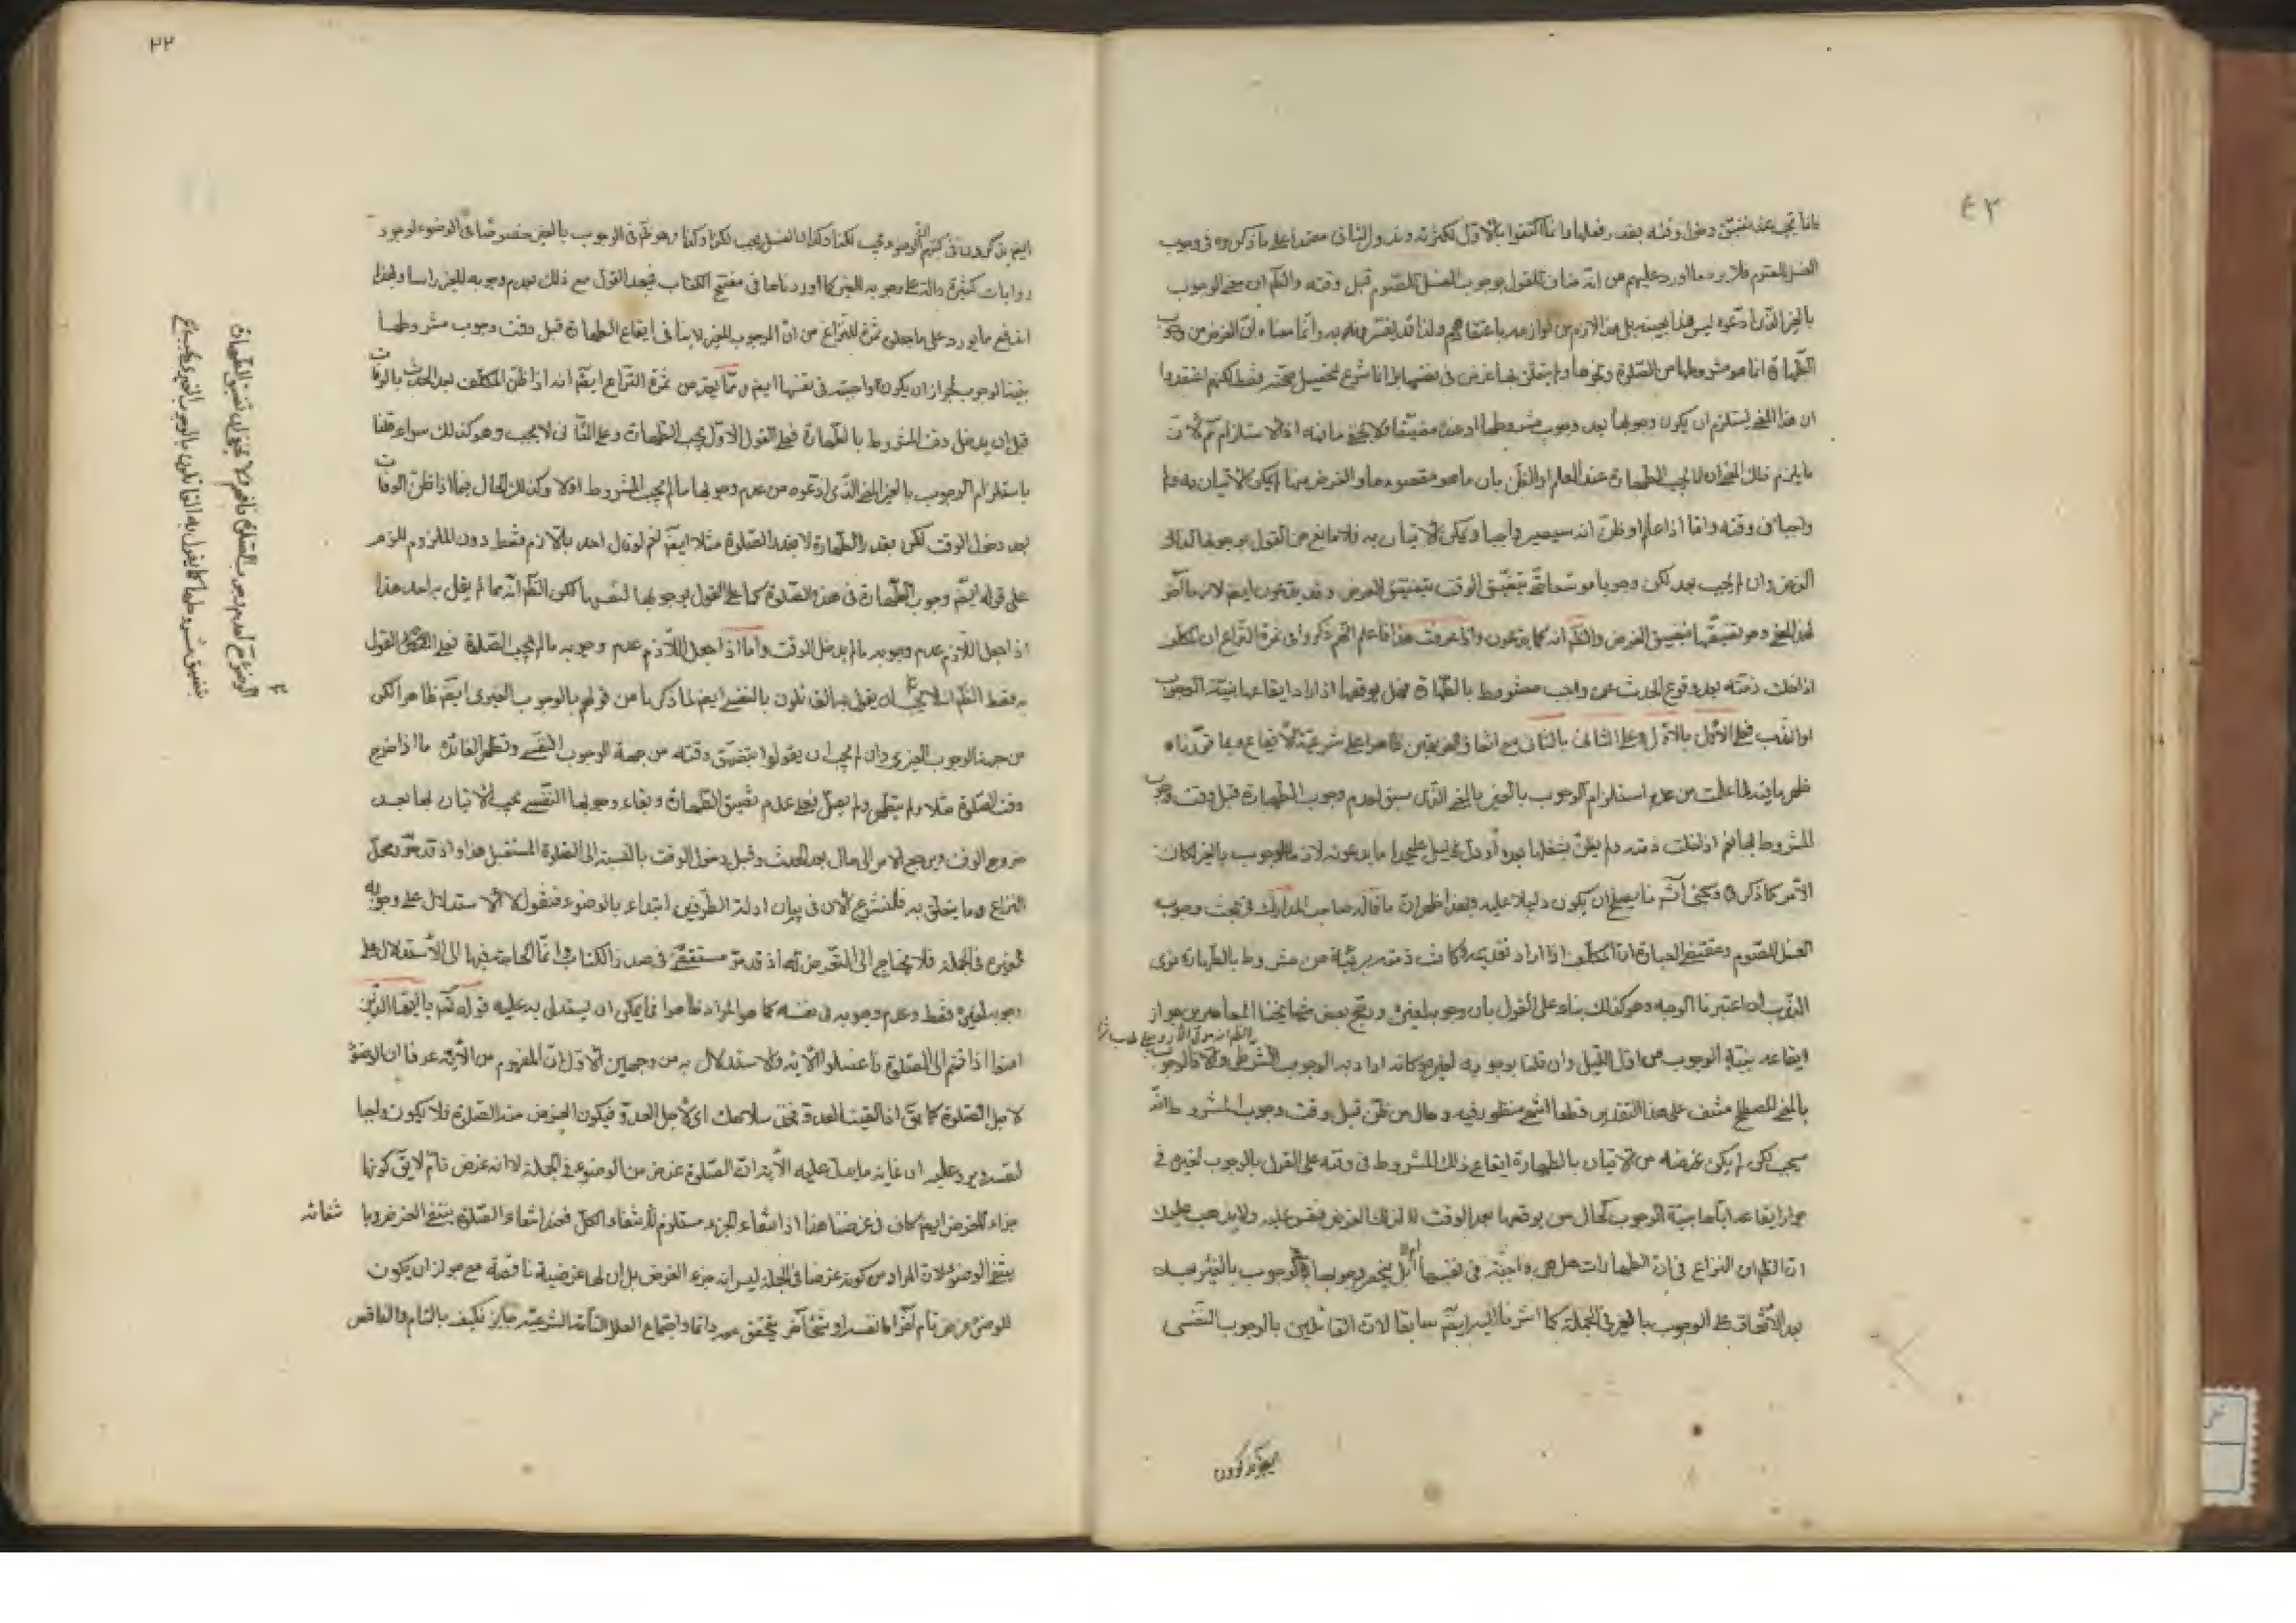 ٤٣
فانما يجب عند تضيق دخول وقته بقدر فعلها وانما اكتفوا بالاول لكثرته وندور الثاني معتمدا على ما ذكروه في وجوب
الغسل للصوم فلا يرد ما اورد عليهم من انه مناف للقول بوجوب الغسل للصوم قبل وقته والظم ان معنى الوجوب
بالغير الذي ادعوه ليس هذا بعينه بل هذا لازم من لوازمه باعتقادهم ولذا قد يفسرونه به وانما معناه ان الغرض من وجوب
الطهارة انما هو مشروطها من الصلوة ونحوها ولم يتعلق بها غرض في نفسها بل انما شرع لتحصيل صحته فقط لكنهم اعتقدوا
ان هذا المعنى يستلزم ان يكون وجوبها بعد وجوب مشروطها او عنده مضيقا فلا يخفى ما فيه اذ لا استلزام ثم لان
ما يلزم ذلك المعنى ان لا يجب الطهارة عند العلم او الظن بان ما هو مقصودها والغرض منها لم يمكن الاتيان به
واجبا في وقته واما اذا علم او ظن انه سيصير واجبا ويمكن الاتيان به فلا مانع من القول بوجوبها لذلك
الغرض وان لم يجب بعد لكن وجوبا موسعا يتضيق الوقت بتضيق الغرض وقد يدعون ايضا لازما آخر
لهذا المعنى وهو تضيقها بتضيق الغرض والظم انه كما يدعون واذا عرفت هذا فاعلم انهم ذكروا في ثمرة النزاع ان المكلف
اذا خلت ذمته بعد وقوع الحدث عن واجب مشروط بالطهارة فهل يوقعها اذا اراد ايقاعها بنية الوجوب
او الندب فعلى الاول بالاول وعلى الثاني بالثاني مع اتفاق الفريقين ظاهرا على شرعية الايقاع وبما قررناه
ظهر ما فيه لما علمت من عدم استلزام الوجوب بالغير بالمعنى الذي سبق لعدم وجوب الطهارة قبل وقت وجوب
المشروط بها نعم اذا خلت ذمته ولم يظن بشغلها بعد او دل دليل على ما يدعونه لازما للوجوب بالغير لكان
الامر كما ذكره وسيجئ ثم ما يصلح ان يكون دليلا عليه وبهذا ظهر ان ما قاله صاحب المدارك في بحث وجوب
الغسل للصوم ومقتضى العبارة ان المكلف اذا اراد تقديمه وكانت ذمته بريئة من مشروط بالطهارة نوى
الندب ان اعتبرنا الوجه وهو كذلك بناء على القول بان وجوبه لغيره ورجح بعض مشايخنا المعاصرين جواز
ايقاعه بنية الوجوب من اول الليل وان قلنا بوجوبه لغيره وكانه اراد به الوجوب الشرطي والا فالوجوب
بالمعنى المصطلح منتف على هذا التقدير قطعا انتهى منظور فيه وحال من ظن قبل وقت وجوب المشروط انه
سيجب لكن لم يكن غرضه من الاتيان بالطهارة ايقاع ذلك المشروط في وقته على القول بالوجوب لغيره في
جواز ايقاعه اياها بنية الوجوب كحال من يوقعها بعد الوقت لا لذلك الغرض فقس عليه ولا يذهب عليك
ان الظم ان النزاع في ان الطهارات هل هي واجبة في نفسها ام لا بل ينحصر وجوبها في الوجوب بالغير فيه
بعد الاتفاق على الوجوب بالغير في الجملة كما اشرنا اليه ايضا سابقا لان القائلين بالوجوب النفسي
ايضا يذكرون
٢٢
ايضا يذكرون في كتبهم ان الوضوء يجب لكذا وكذا وان الغسل يجب لكذا وكذا وهو ظم في الوجوب بالغير خصوصا في الوضوء لوجود
روايات كثيرة دالة على وجوبه للغير كما اوردناها في مفتتح الكتاب فيبعد القول مع ذلك بعدم وجوبه للغير راسا وبهذا
اندفع ما يورد على ما جعل ثمرة للنزاع من ان الوجوب للغير لا ينافي ايقاع الطهارة قبل وقت وجوب مشروطها
بنية الوجوب لجواز ان يكون واجبة في نفسها ايضا ومما يعد من ثمرة النزاع ايضا انه اذا ظن المكلف بعد الحدث بالوفات
قبل ان يدخل وقت المشروط بالطهارة فعلى القول الاول يجب الطهارة وعلى الثاني لا يجب وهو كذلك سواء قلنا
باستلزام الوجوب بالغير للمعنى الذي ادعوه من عدم وجوبها ما لم يجب المشروط او لا وكذلك الحال فيما اذا ظن الوفات
بعد دخول الوقت لكن بقدر الطهارة لا بقدر الصلوة مثلا ايضا نعم لو قال احد باللازم فقط دون الملزوم للزم
على قوله ايضا وجوب الطهارة في هذه الصلوة كما على القول بوجوبها لنفسها لكن الظم انه مما لم يقل به احد هذا
اذا جعل اللازم عدم وجوبه ما لم يدخل الوقت واما اذا جعل اللازم عدم وجوبه ما لم يجب الصلوة فعلى القول
به فقط الظم انه لا يجب ان يقول به القائلون بالنفسي ايضا لما ذكرنا من قولهم بالوجوب الغيري ايضا ظاهرا لكن
من جهة الوجوب الغيري وان لم يجب ان يقولوا بتضيق وقته من جهة الوجوب النفسي وتظهر الفائدة ما اذا خرج
وقت الصلوة مثلا ولم يتطهر ولم يصل فعلى عدم تضيق الطهارة وبقاء وجوبها النفسي يجب الاتيان بها بعد
خروج الوقت ويرجع الامر الى حال بعد الحدث وقبل دخول الوقت بالنسبة الى الصلوة المستقبل هذا واذ قد تحرر محل
النزاع وما يتعلق به فلنشرع الآن في بيان ادلة الطرفين ابتداء بالوضوء فنقول اما الاستدلال على وجوبه
لغيره في الجملة فلا يحتاج الى التعرض له اذ قد مر مستقصى في صدر الكتاب وانما الحاجة فيها الى الاستدلال على
وجوبه لغيره فقط وعدم وجوبه في نفسه كما هو المراد ظاهرا فما يمكن ان يستدل به عليه قوله تعم يا ايها الذين
امنوا اذا قمتم الى الصلوة فاغسلوا الآية والاستدلال به من وجهين الاول ان المفهوم من الآية عرفا ان الوضوء
لاجل الصلوة كما يق اذا لقيت العدو فخذ سلاحك اي لاجل العدو فيكون الغرض منه الصلوة فلا يكون واجبا
لنفسه ويرد عليه ان غاية ما يدل عليه الآية ان الصلوة غرض من الوضوء في الجملة لا انه غرض تام لا يق كونها
جزاء للغرض ايضا كاف في غرضنا هذا اذ انتفاء الجزء مستلزم لانتفاء الكل فعند انتفاء الصلوة ينتفي الغرض وبانتفائه
ينتفي الوضوء لان المراد من كونه غرضا في الجملة ليس انه جزء الغرض بل ان لها غرضية ناقصة مع جواز ان يكون
للوضوء غرض تام آخر اما نفسه او شئ آخر يتحقق مورد دائما واجتماع العلل التامة الشرعية جايز فكيف بالتام والناقص